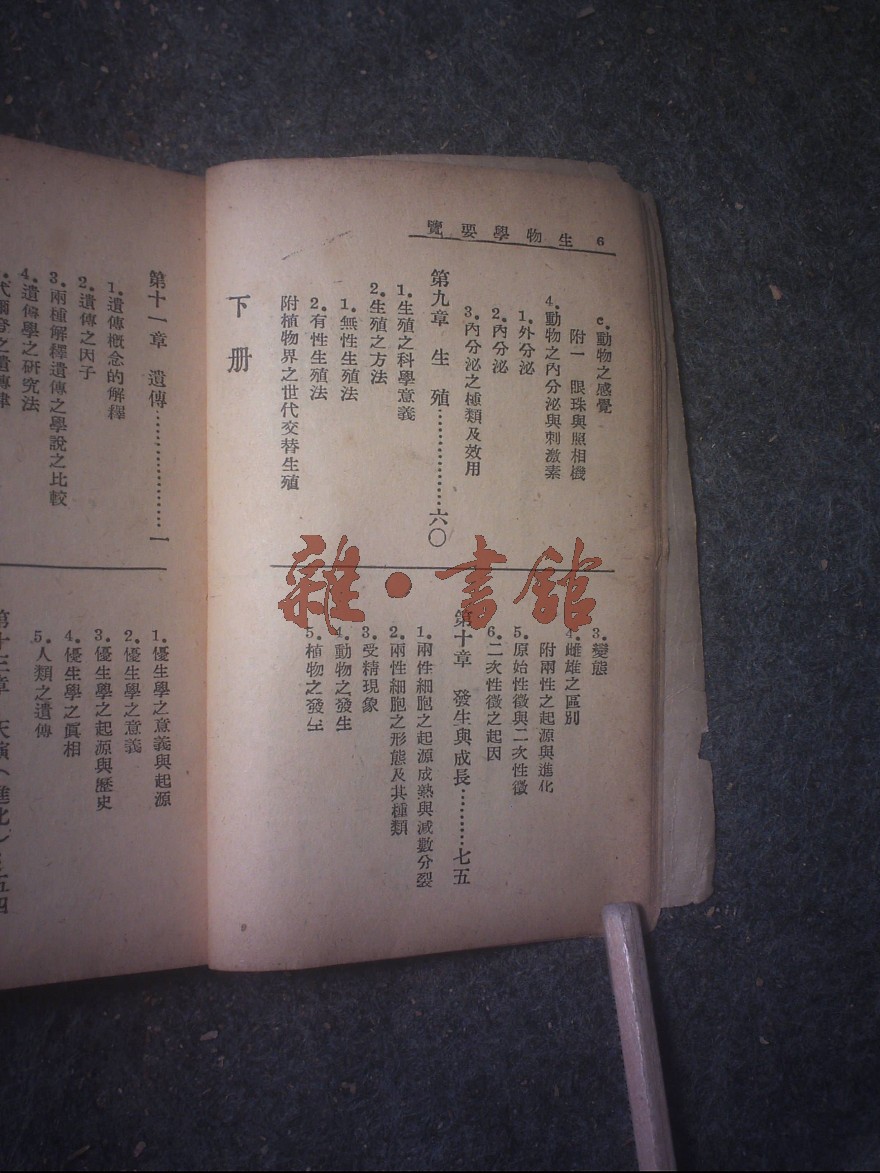 6 生物學要覽
c.動物之感覺
附一 眼珠與照相機
4.動物之內分泌與刺激素
1.外分泌
2.內分泌
3.內分泌之種類及效用
第九章 生殖………………六〇
1.生殖之科學意義
2.生殖之方法
1.無性生殖法
2.有性生殖法
附植物界之世代交替生殖
下册
3.變態
4.雌雄之區別
附兩性之起源與進化
5.原始性徵與二次性徵
6.二次性徵之起因
第十章 發生與成長………七五
1.兩性細胞之起源成熟與減數分裂
2.兩性細胞之形態及其種類
3.受精現象
4.動物之發生
5.植物之發生
第十一章 遺傳………………一
1.遺傳概念的解釋
2.遺傳之因子
3.兩種解釋遺傳之學說之比較
4.遺傳學之研究法
之遺傳律
1.優生學之意義與起源
2.優生學之意義
3.優生學之起源與歷史
4.優生學之眞相
5.人類之遺傳
天演(進化)
雜·書館
9